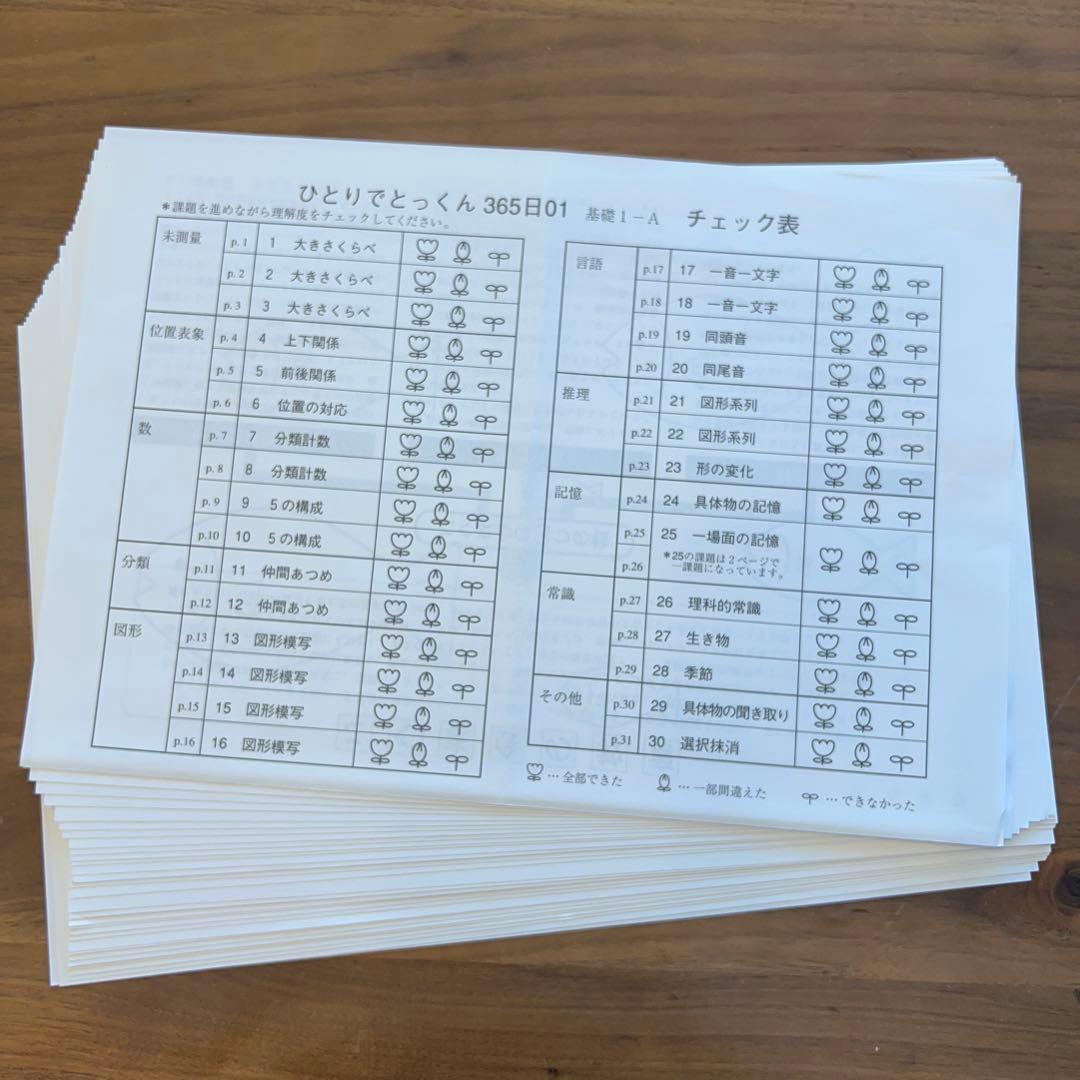 ひとりでとっくん 365日01 基礎1-A チェック表
*課題を進めながら理解度をチェックしてください。
未測量 p.1 1 大きさくらべ
p.2 2 大きさくらべ
p.3 3 大きさくらべ
位置表象 p.4 4 上下関係
p.5 5 前後関係
p.6 6 位置の対応
数 p.7 7 分類計数
p.8 8 分類計数
p.9 9 5の構成
p.10 10 5の構成
分類 p.11 11 仲間あつめ
p.12 12 仲間あつめ
図形 p.13 13 図形模写
p.14 14 図形模写
p.15 15 図形模写
p.16 16 図形模写
言語 p.17 17 一音一文字
p.18 18 一音一文字
p.19 19 同頭音
p.20 20 同尾音
推理 p.21 21 図形系列
p.22 22 図形系列
p.23 23 形の変化
記憶 p.24 24 具体物の記憶
p.25 25 一場面の記憶
p.26 *25の課題は2ページで
一課題になっています。
常識 p.27 26 理科的常識
p.28 27 生き物
p.29 28 季節
その他 p.30 29 具体物の聞き取り
p.31 30 選択抹消
…全部できた …一部間違えた …できなかった